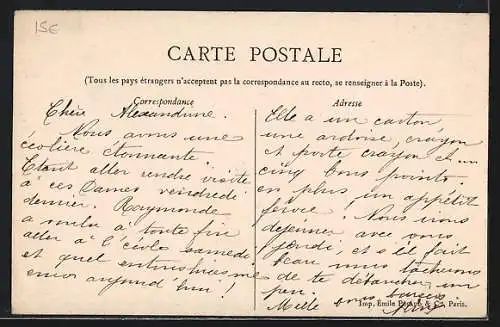 15€
CARTE POSTALE
(Tous les pays étrangers n'acceptent pas la correspondance au recto, se renseigner à la Poste).
Correspondance
Adresse
Chère Alexandrine.
Nous avons une
écolière étonnante.
Etant aller rendre visite
à ces Dames vendredi
dernier. Raymonde
a voulu à toute fin
aller à l'école samedi
et quel enthousiasme
encor aujourd'hui !
Elle a un carton
une ardoise, crayon
et porte crayon et ...
cinq bons points.
en plus un appétit
féroce. Nous irons
déjeuner avec vous
jeudi, et s'il fait
beau nous tâcherons
de te débaucher un
peu.
Mille bons baisers
Imp. Emile Pécaud & Cie, Paris.